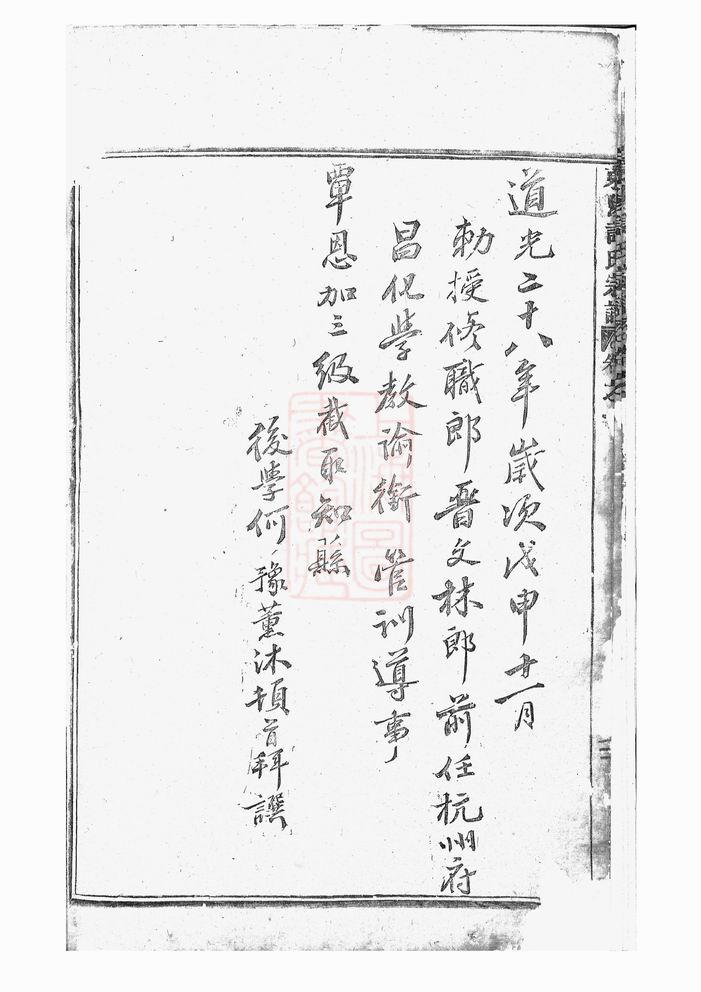 道光二十八年歲次戊申十一月
勅授修職郎晋文林郎前任杭州府
昌化學教諭銜管訓導事
覃恩加三級截取知縣
後學何豫薰沐頓首拜譔
氏宗譜